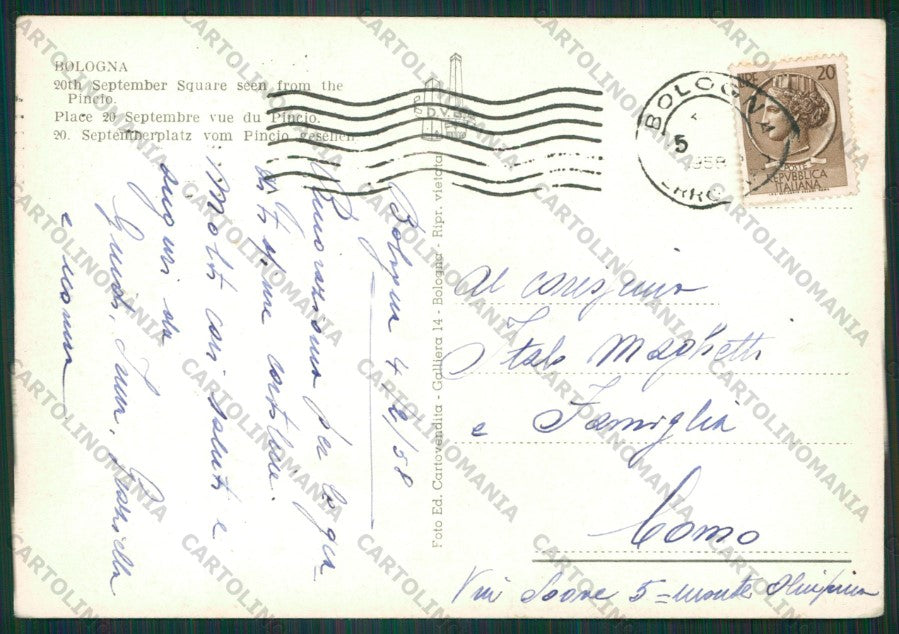 BOLOGNA
20th September Square seen from the
Pincio.
Place 20 Septembre vue du Pincio.
20. Septemberplatz vom Pincio gesehen
BOLOGNA
5
1958
LIRE 20
POSTE
REPVBBLICA
ITALIANA
Foto Ed. Cartovendita - Galliera 14 - Bologna - Ripr. vietata
Bologna 4-2/58
per
cartolina.
Molti cari saluti e
auguri da
Guido,
e
Al carissimo
Italo Maghetti
e Famiglia
Como
Via 5 = monte Olimpino
CARTOLINOMANIA